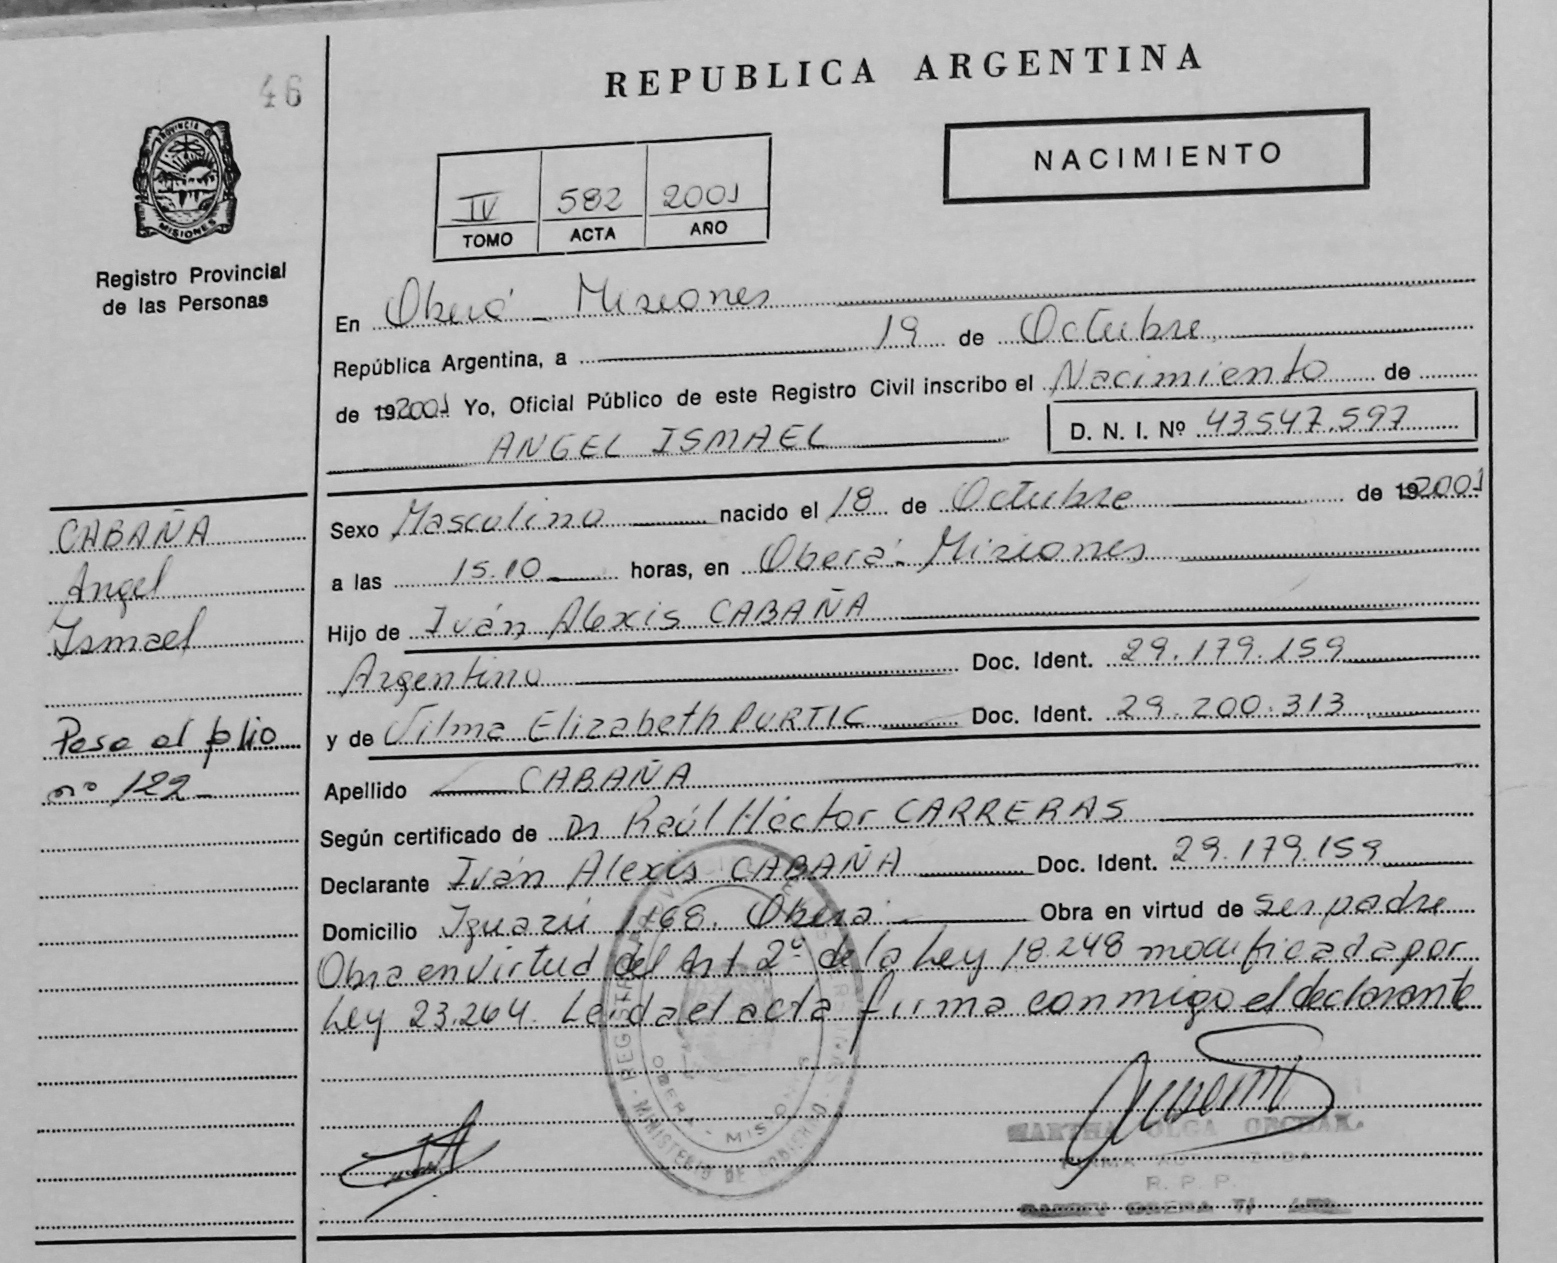 46
REPUBLICA ARGENTINA
NACIMIENTO
PROVINCIA DE
MISIONES
Registro Provincial
de las Personas
IV 582 2001
TOMO ACTA AÑO
En Oberá - Misiones
República Argentina, a 19 de Octubre
de 192001 Yo, Oficial Público de este Registro Civil inscribo el Nacimiento de
ANGEL ISMAEL D. N. I. Nº 43.547.597
Sexo Masculino nacido el 18 de Octubre de 192001
a las 15.10 horas, en Oberá - Misiones
Hijo de Iván Alexis CABAÑA
Argentino Doc. Ident. 29.179.159
y de Vilma Elizabeth PURTIC Doc. Ident. 29.200.313
Apellido CABAÑA
Según certificado de Dr Raúl Héctor CARRERAS
Declarante Iván Alexis CABAÑA Doc. Ident. 29.179.159
Domicilio Iguazú 1168. Oberá Obra en virtud de ser padre
Obra en virtud del Art. 2º de la Ley 18.248 modificada por
Ley 23.264. Leida el acta firma conmigo el declarante
CABAÑA
Angel
Ismael
Pasa al folio
nº 122
OBERA - MISIONES
MINISTERIO DE GOBIERNO
MARTHA OLGA
R. P. P.